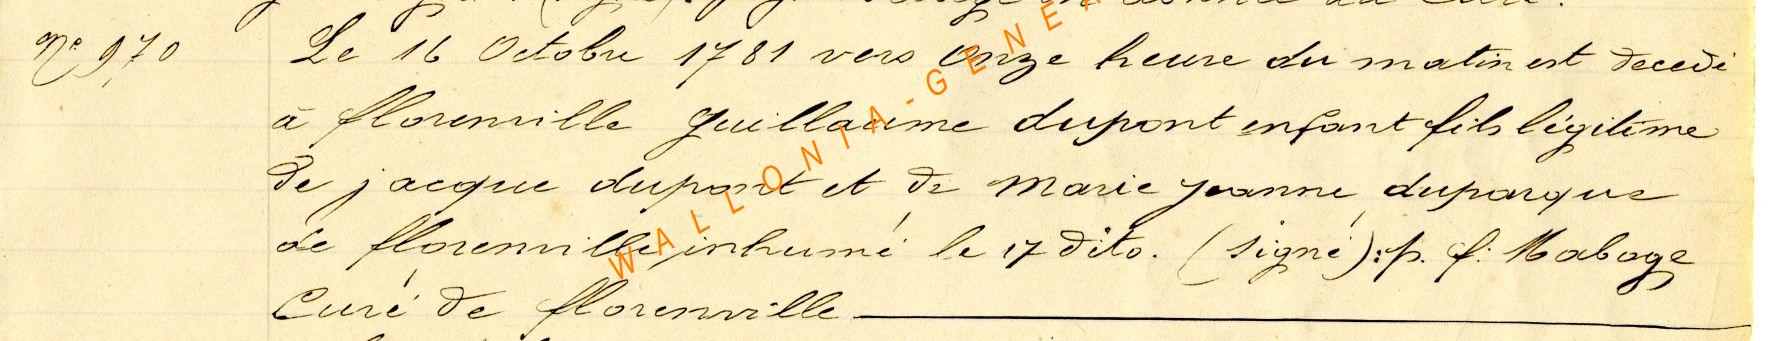 Nº 970 Le 16 Octobre 1781 vers onze heure du matin est decedé
à florenville guillaume dupont enfant fils légitime
de jacque dupont et de Marie jeanne duparque
de florenville inhumé le 17 dito. (signé): p. f: Maboge
Curé de florenville
WALLONIA-GENEA